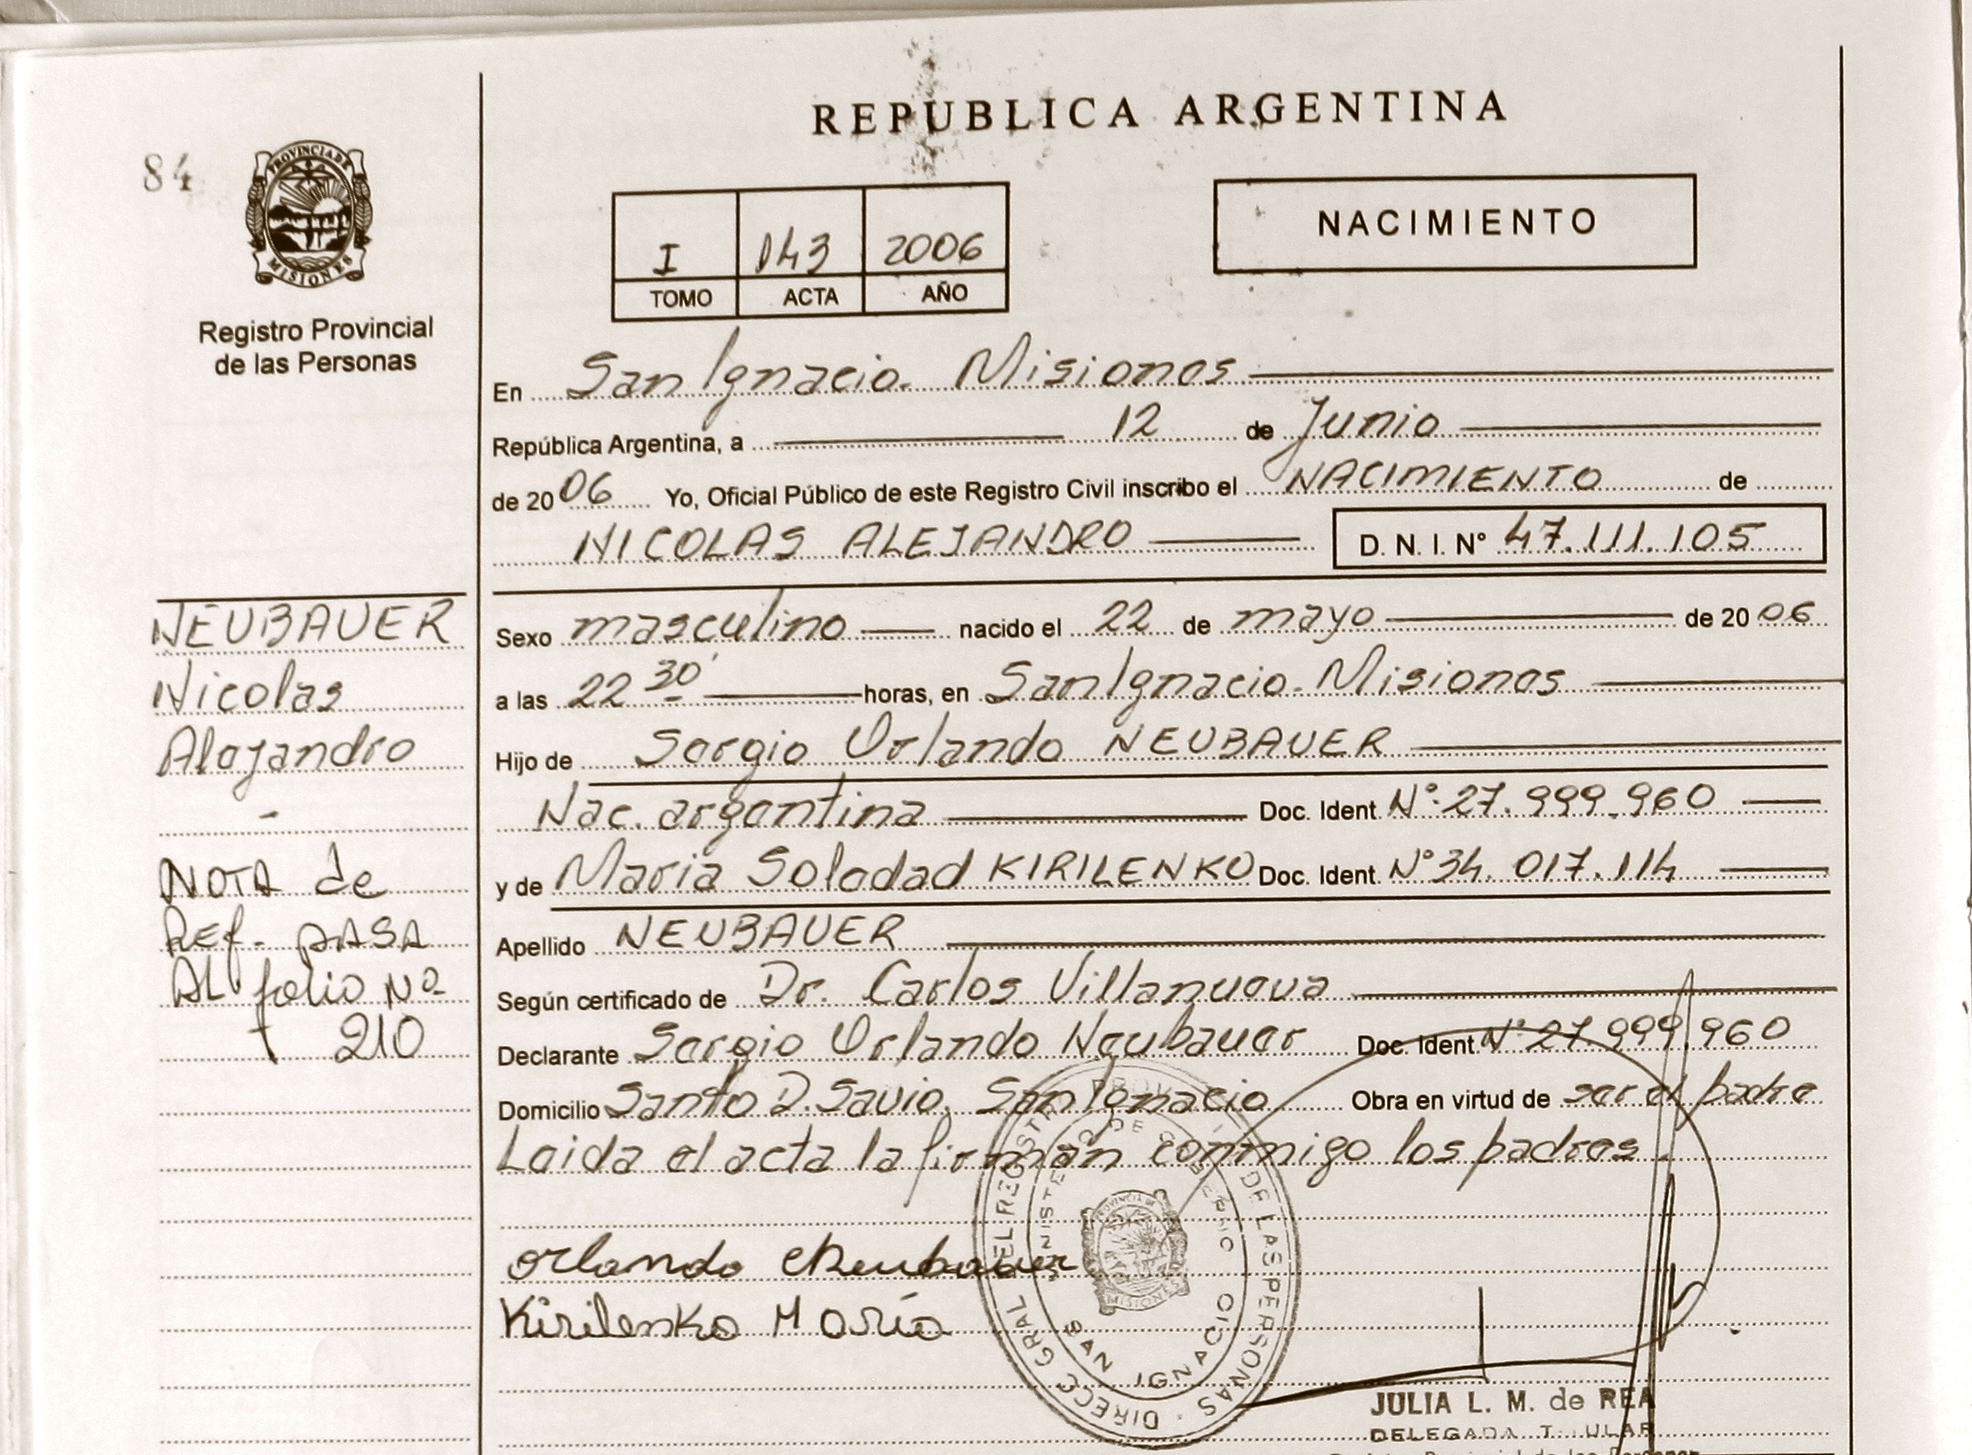 REPUBLICA ARGENTINA
84
PROVINCIA DE
MISIONES
Registro Provincial
de las Personas
I 143 2006
TOMO ACTA AÑO
NACIMIENTO
En San Ignacio. Misiones
República Argentina, a 12 de Junio
de 2006 Yo, Oficial Público de este Registro Civil inscribo el NACIMIENTO de
NICOLAS ALEJANDRO D. N. I. N° 47.111.105
Sexo masculino nacido el 22 de mayo de 2006
a las 22 30' horas, en San Ignacio. Misiones
Hijo de Sergio Orlando NEUBAUER
Nac. argentina Doc. Ident. N°.27.999.960
y de Maria Soledad KIRILENKO Doc. Ident. N°34.017.114
Apellido NEUBAUER
Según certificado de Dr. Carlos Villanueva
Declarante Sergio Orlando Neubauer Doc. Ident. N°27.999.960
Domicilio Santo D. Savio, San Ignacio Obra en virtud de ser el padre
Leida el acta la firman conmigo los padres.
NEUBAUER
Nicolas
Alejandro
-
NOTA de
Ref. pASA
AL folio Nº
210
Orlando Neubauer
Kirilenko María
DIRECC. GRAL DEL REGISTRO PROVINCIAL DE LAS PERSONAS
MINISTERIO DE GOBIERNO
SAN IGNACIO
PROVINCIA DE
MISIONES
JULIA L. M. de REA
DELEGADA TITULAR